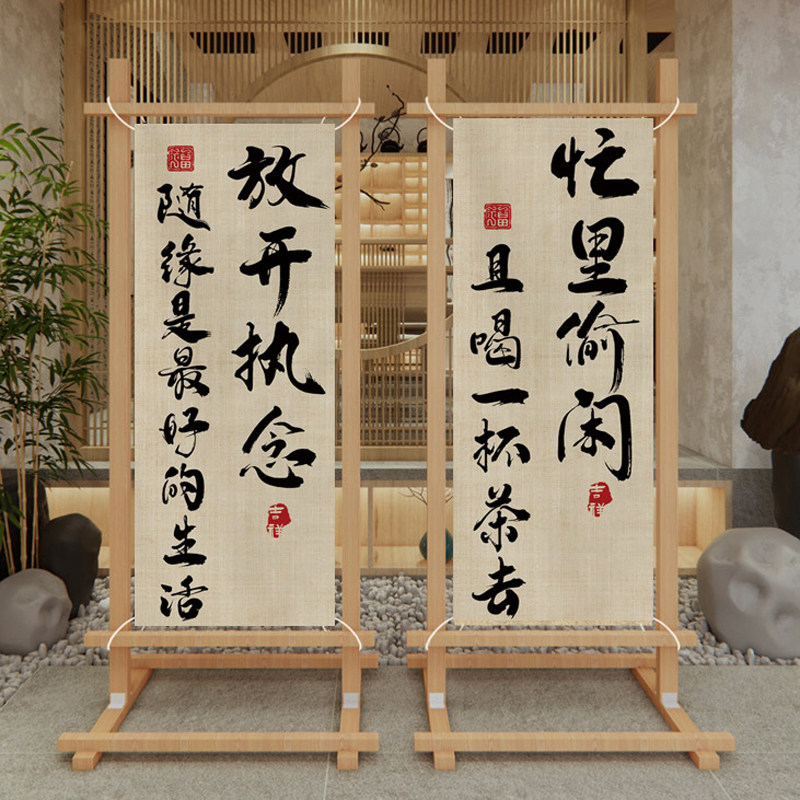 放开执念
吉祥
福
随缘是最好的生活
忙里偷闲
吉祥
福
且喝一杯茶去